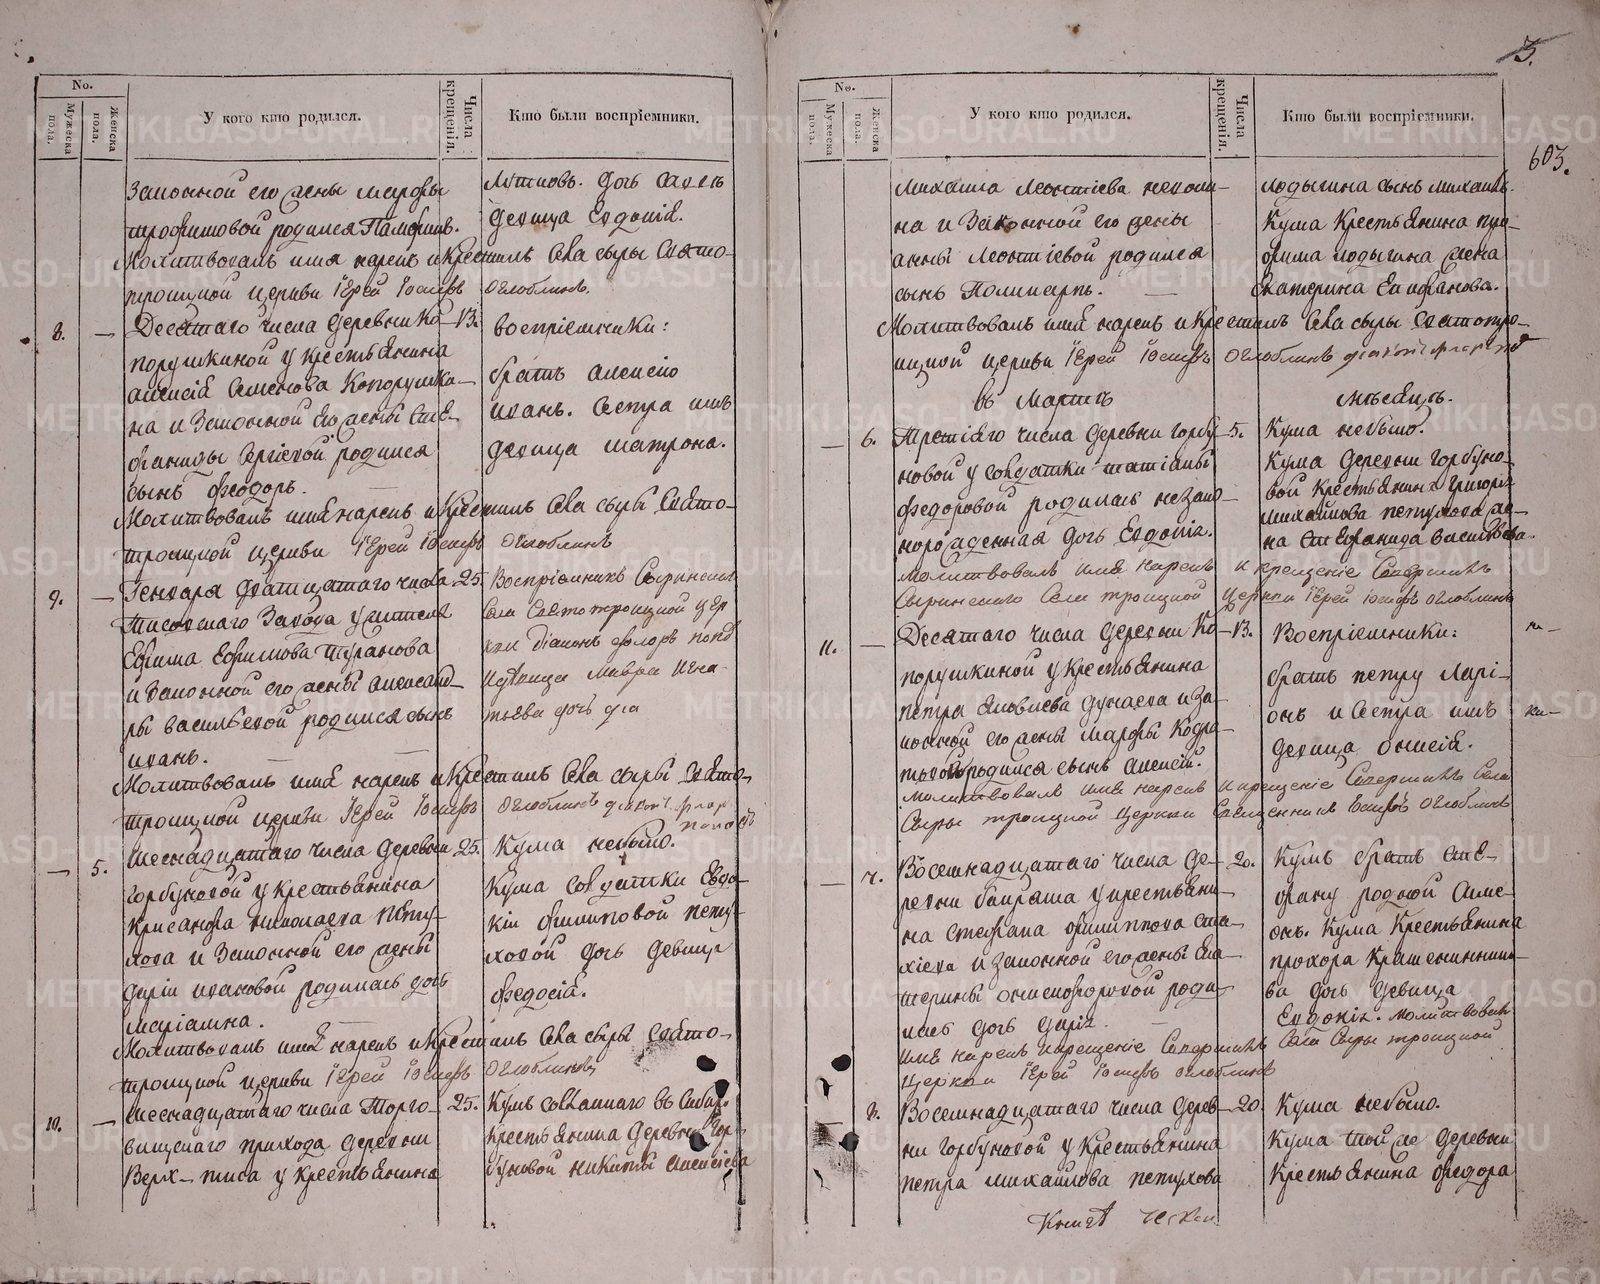 3.
603.
No.
Мужеска пола.
Женска пола.
У кого кто родился.
Числа крещенія.
Кто были воспріемники.
Законной его жены Марѳы
трофимовой родился Памфилъ.
Молитвовалъ имя нарекъ и Крестилъ Села сыры Свято-
троицкой церкви Іерей Іосифъ Оглоблинъ.
дочь
девица Евдокія.
8.
Десятаго числа деревни Ко-
13.
порушкиной у крестьянина
алексія Семенова Копорушки-
на и Законной его жены Сте-
фаниды Сергіевой родился
сынъ Феодоръ.
воспріемники:
братъ алексію
иванъ. Сестра имъ
девица матрона.
Молитвовалъ имя нарекъ и Крестилъ Села сыры Свято-
троицкой церкви Іерей Іосифъ Оглоблинъ
9.
Генваря дватцатаго числа
25.
Тисовскаго Завода у
Ефима Ефимова
и Законной его жены александ-
ры васильевой родился сынъ
иванъ.
Воспріемникъ Сыринскаго
Села Святотроицкой цер
кви діаконъ флоръ попо
и девица Мавра Игна-
тьева дочь
Молитвовалъ имя нарекъ и Крестилъ Села сыры Свято-
троицкой церкви Іерей Іосифъ Оглоблинъ
5.
шеснадцатаго числа деревни
25.
Горбуновой у крестьянина
Крисанфа николаева Пету-
хова и Законной его жены
даріи ивановой родилась дочь
маріамна.
Кума небыло.
Кума солдатки Евдо-
кіи филиповой пету-
ховой дочь девица
Феодосія.
Молитвовалъ имя нарекъ и Крестилъ Села сыры Свято-
троицкой церкви Іерей Іосифъ Оглоблинъ
10.
шеснадцатаго числа Торго-
25.
вищскаго прихода деревни
Верх-тиса у крестьянина
Кумъ сосланнаго въ Сибирь
Крестьянина деревни Гор-
буновой никиты алексіева
No.
Мужеска пола.
Женска пола.
У кого кто родился.
Числа крещенія.
Кто были воспріемники.
Михаила Леонтіева
на и Законной его жены
анны Леонтіевой родился
сынъ Поликарпъ.
лодыгина сынъ михаилъ.
Кума Крестьянина тро-
фима лодыгина жена
Екатерина Епифанова.
Молитвовалъ имя нарекъ и Крестилъ Села сыры Святотро-
ицкой церкви Іерей Іосифъ Оглоблинъ
въ Мартѣ
мѣсяцѣ.
6.
Третіяго числа деревни Горбу-
5.
новой у солдатки татіаны
федоровой родилась незако-
норожденная дочь Евдокія.
Кума небыло.
Кума деревни горбуно-
вой Крестьянина григорія
михайлова петухова же-
на Стефанида васильева.
молитвовалъ имя нарекъ и крещеніе Совершилъ
Сыринскаго Села троицкой церкви Іерей Іосифъ Оглоблинъ
11.
Десятаго числа деревни Ко-
13.
порушкиной у Крестьянина
петра яковлева дунаева и за-
конной его жены марѳы Кодра-
товой родился сынъ алексій.
Воспріемники:
братъ петру Лари-
онъ и Сестра имъ
девица анисія.
молитвовалъ имя нарекъ и крещеніе Совершилъ Села
Сыры троицкой Церкви Священникъ Іосифъ Оглоблинъ
7.
Восемнадцатаго числа де-
20.
ревни байраша у крестьяни-
на Стефана филиппова
и законной его жены Ека-
терины онисифоровой роди-
лась дочь дарія.
Кумъ братъ Сте-
фану родной Симе-
онъ. Кума Крестьянина
прохора Крашенинни-
ва дочь девица
Евдокія. молитвовалъ
имя нарекъ и крещеніе Совершилъ Села Сыры троицкой
церкви Іерей Іосифъ Оглоблинъ
8.
Восемнадцатаго числа дерев-
20.
ни Горбуновой у Крестьянина
петра михайлова петухова
Кума небыло.
Кума той же деревни
Крестьянина федора
METRIKI.GASO-URAL.RU